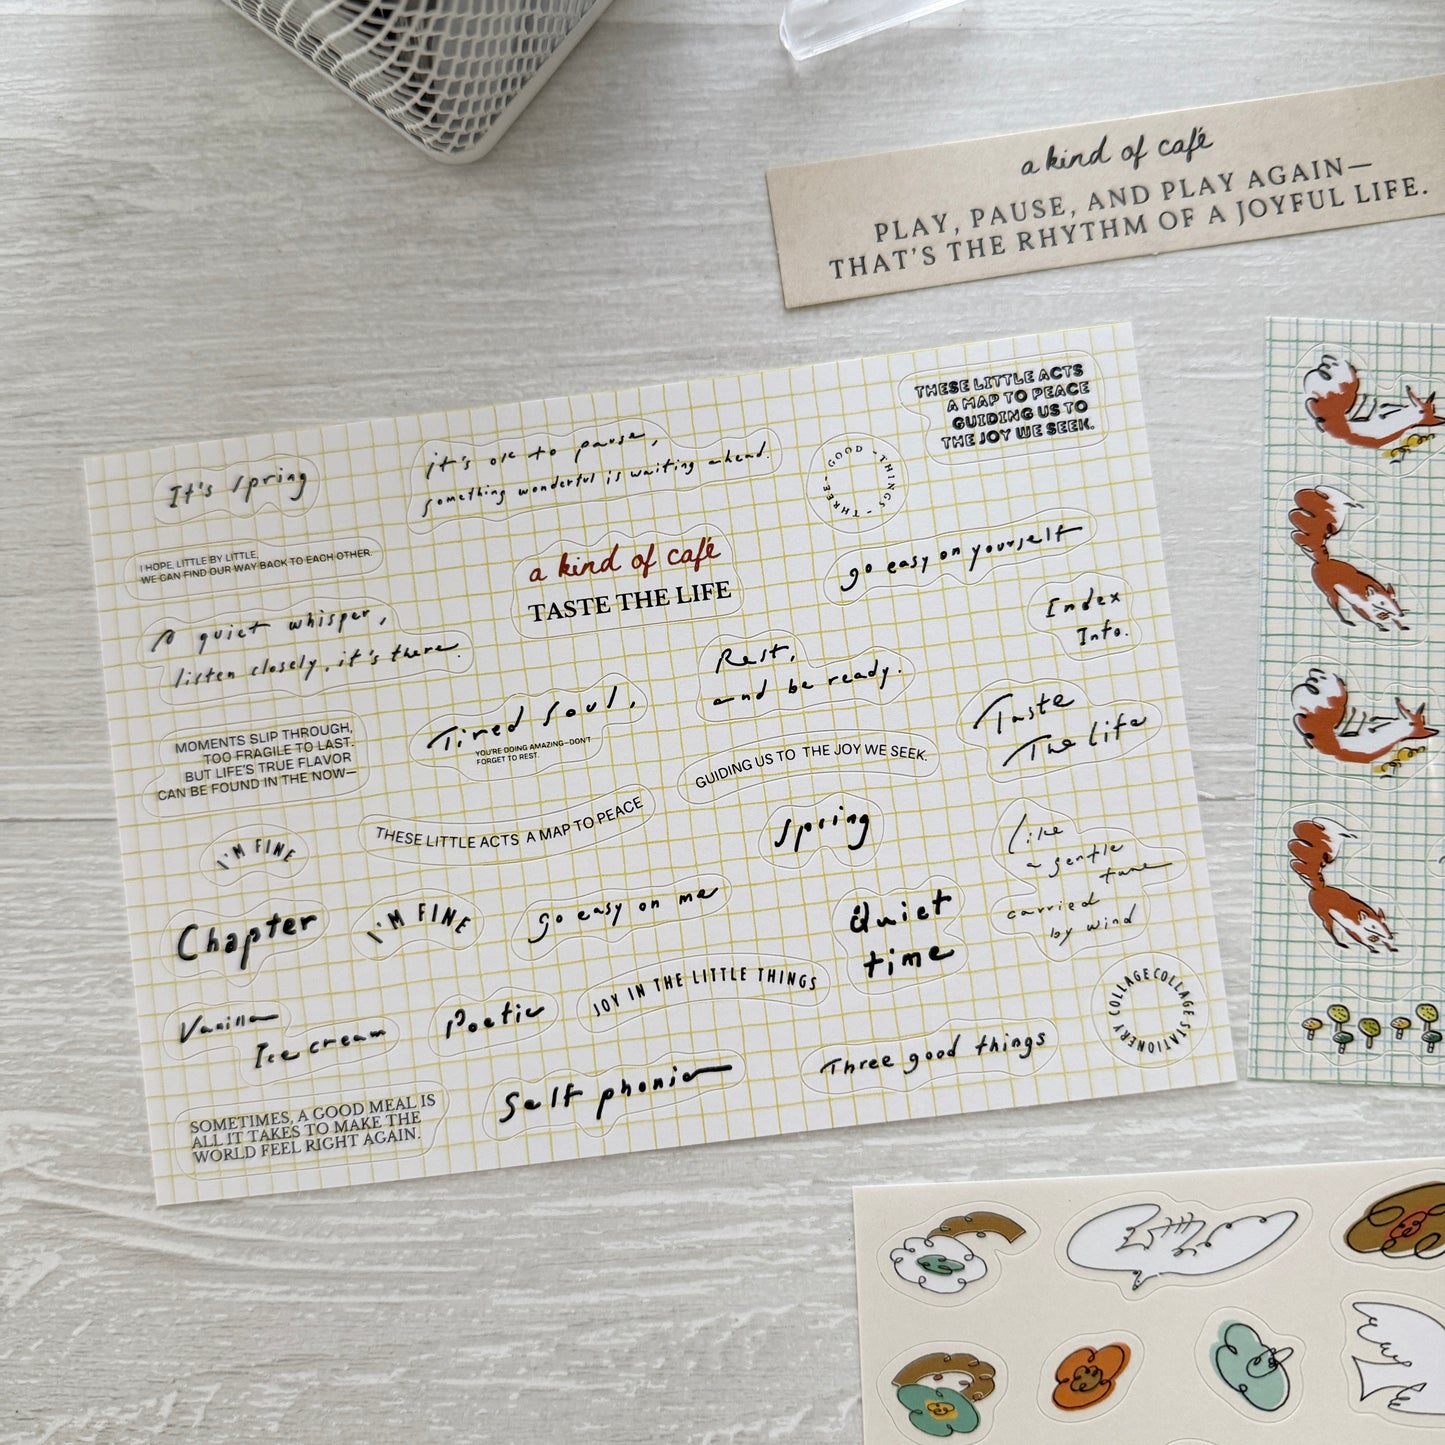 a kind of café
PLAY, PAUSE, AND PLAY AGAIN—
THAT'S THE RHYTHM OF A JOYFUL LIFE.
THESE LITTLE ACTS
A MAP TO PEACE
GUIDING US TO
THE JOY WE SEEK.
It's spring
it's ok to pause,
something wonderful is waiting ahead.
THREE · GOOD · THINGS ·
I HOPE, LITTLE BY LITTLE,
WE CAN FIND OUR WAY BACK TO EACH OTHER.
a kind of café
TASTE THE LIFE
go easy on yourself
Index
Info.
A quiet whisper,
listen closely, it's there.
Rest,
and be ready.
Tired Soul,
YOU'RE DOING AMAZING—DON'T
FORGET TO REST.
Taste
The life
MOMENTS SLIP THROUGH,
TOO FRAGILE TO LAST.
BUT LIFE'S TRUE FLAVOR
CAN BE FOUND IN THE NOW—
GUIDING US TO THE JOY WE SEEK.
THESE LITTLE ACTS A MAP TO PEACE
Spring
like
a gentle
tune
carried
by wind
I'M FINE
Chapter
I'M FINE
go easy on me
Quiet
time
JOY IN THE LITTLE THINGS
Vanilla
Ice cream
Poetic
COLLAGE COLLAGE STATIONERY
Three good things
Self phonic
SOMETIMES, A GOOD MEAL IS
ALL IT TAKES TO MAKE THE
WORLD FEEL RIGHT AGAIN.